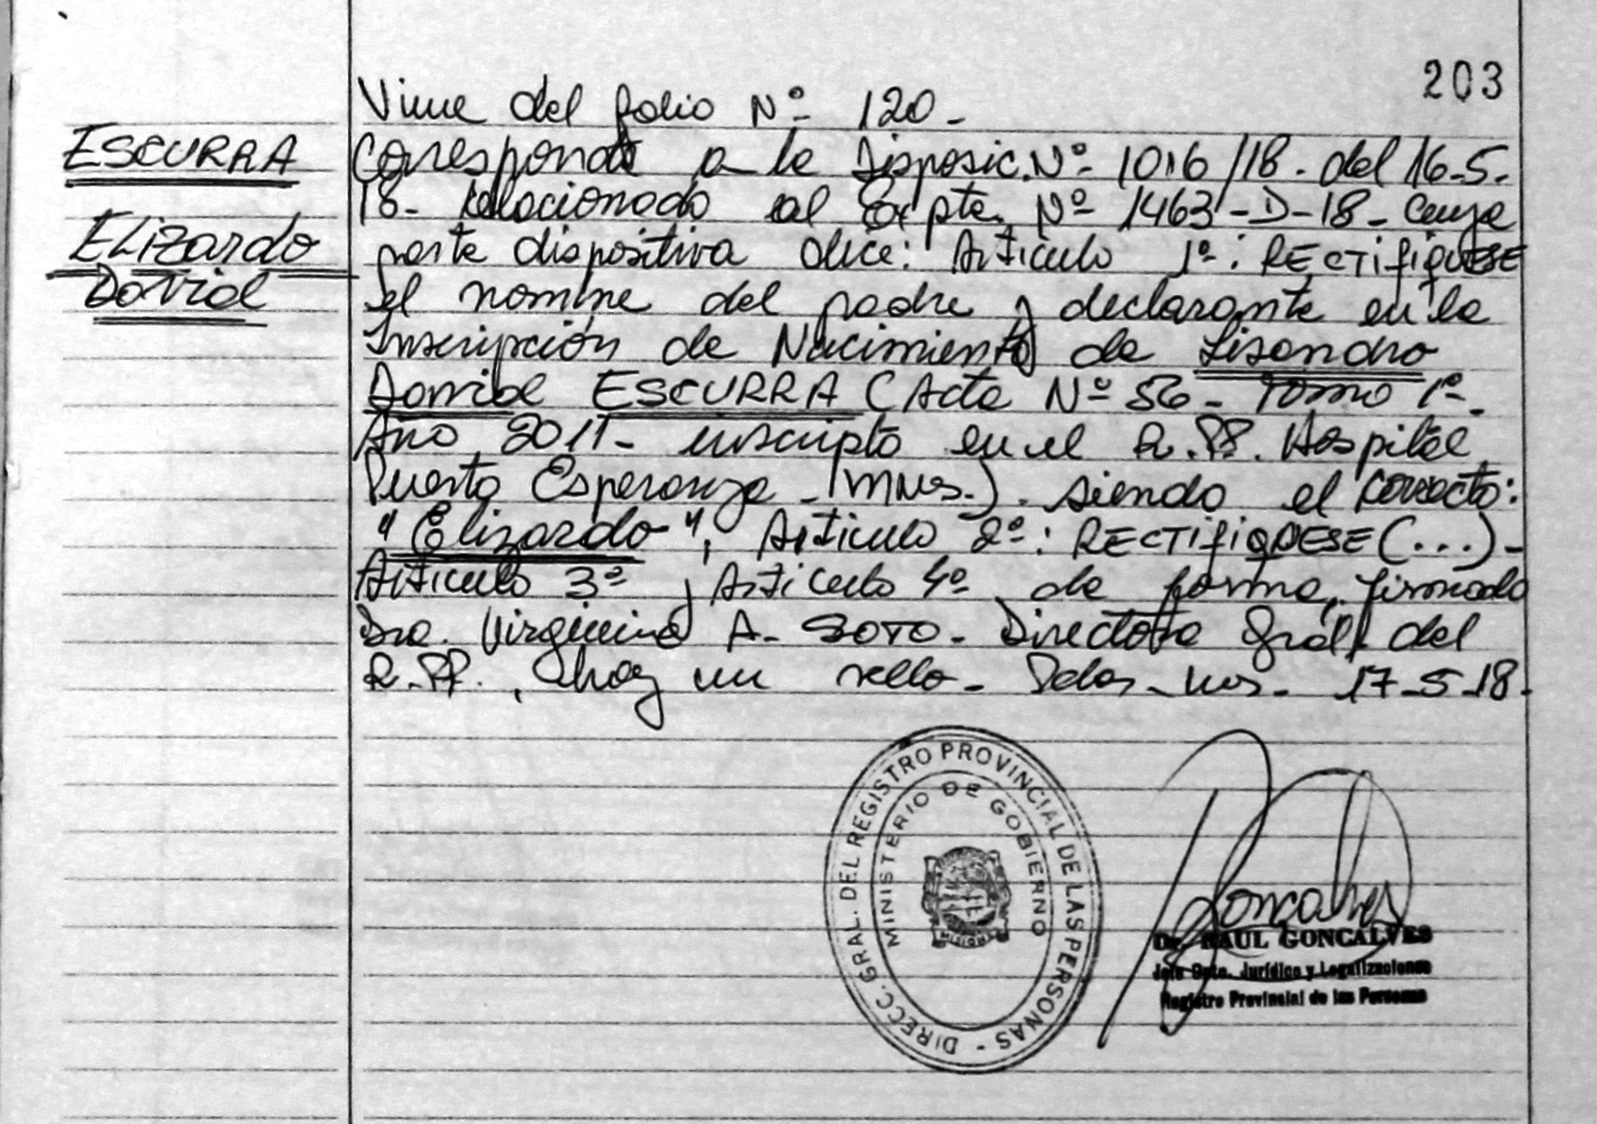 203
Viene del folio Nº 120_
ESCURRA
Elizardo
David
Corresponde a la Disposic. Nº 1016/18. del 16-5-
18- Relacionado al Expte. Nº 1463-D-18- cuya
parte dispositiva dice: Articulo 1º: RECTIFIQUESE
el nombre del padre y declarante en la
Inscripción de Nacimiento de Lisandro
ESCURRA (Acta Nº 56- Tomo 1º-
Año 2011- inscripto en el R.PP. Hospital
Puerto Esperanza -(Mnes.). siendo el correcto:
"Elizardo", Articulo 2º: RECTIFIQUESE (...)-
Articulo 3º y Articulo 4º de forma, firmado
Dra. Virginia A- SOTO- Directora Gral. del
R.PP., hay un sello- Pdas-Mes- 17-5-18-
DIRECC. GRAL. DEL REGISTRO PROVINCIAL DE LAS PERSONAS -
MINISTERIO DE GOBIERNO
MISIONES
Goncalves
Dr. RAUL GONCALVES
Jefe Dpto. Jurídico y Legalizaciones
Registro Provincial de las Personas